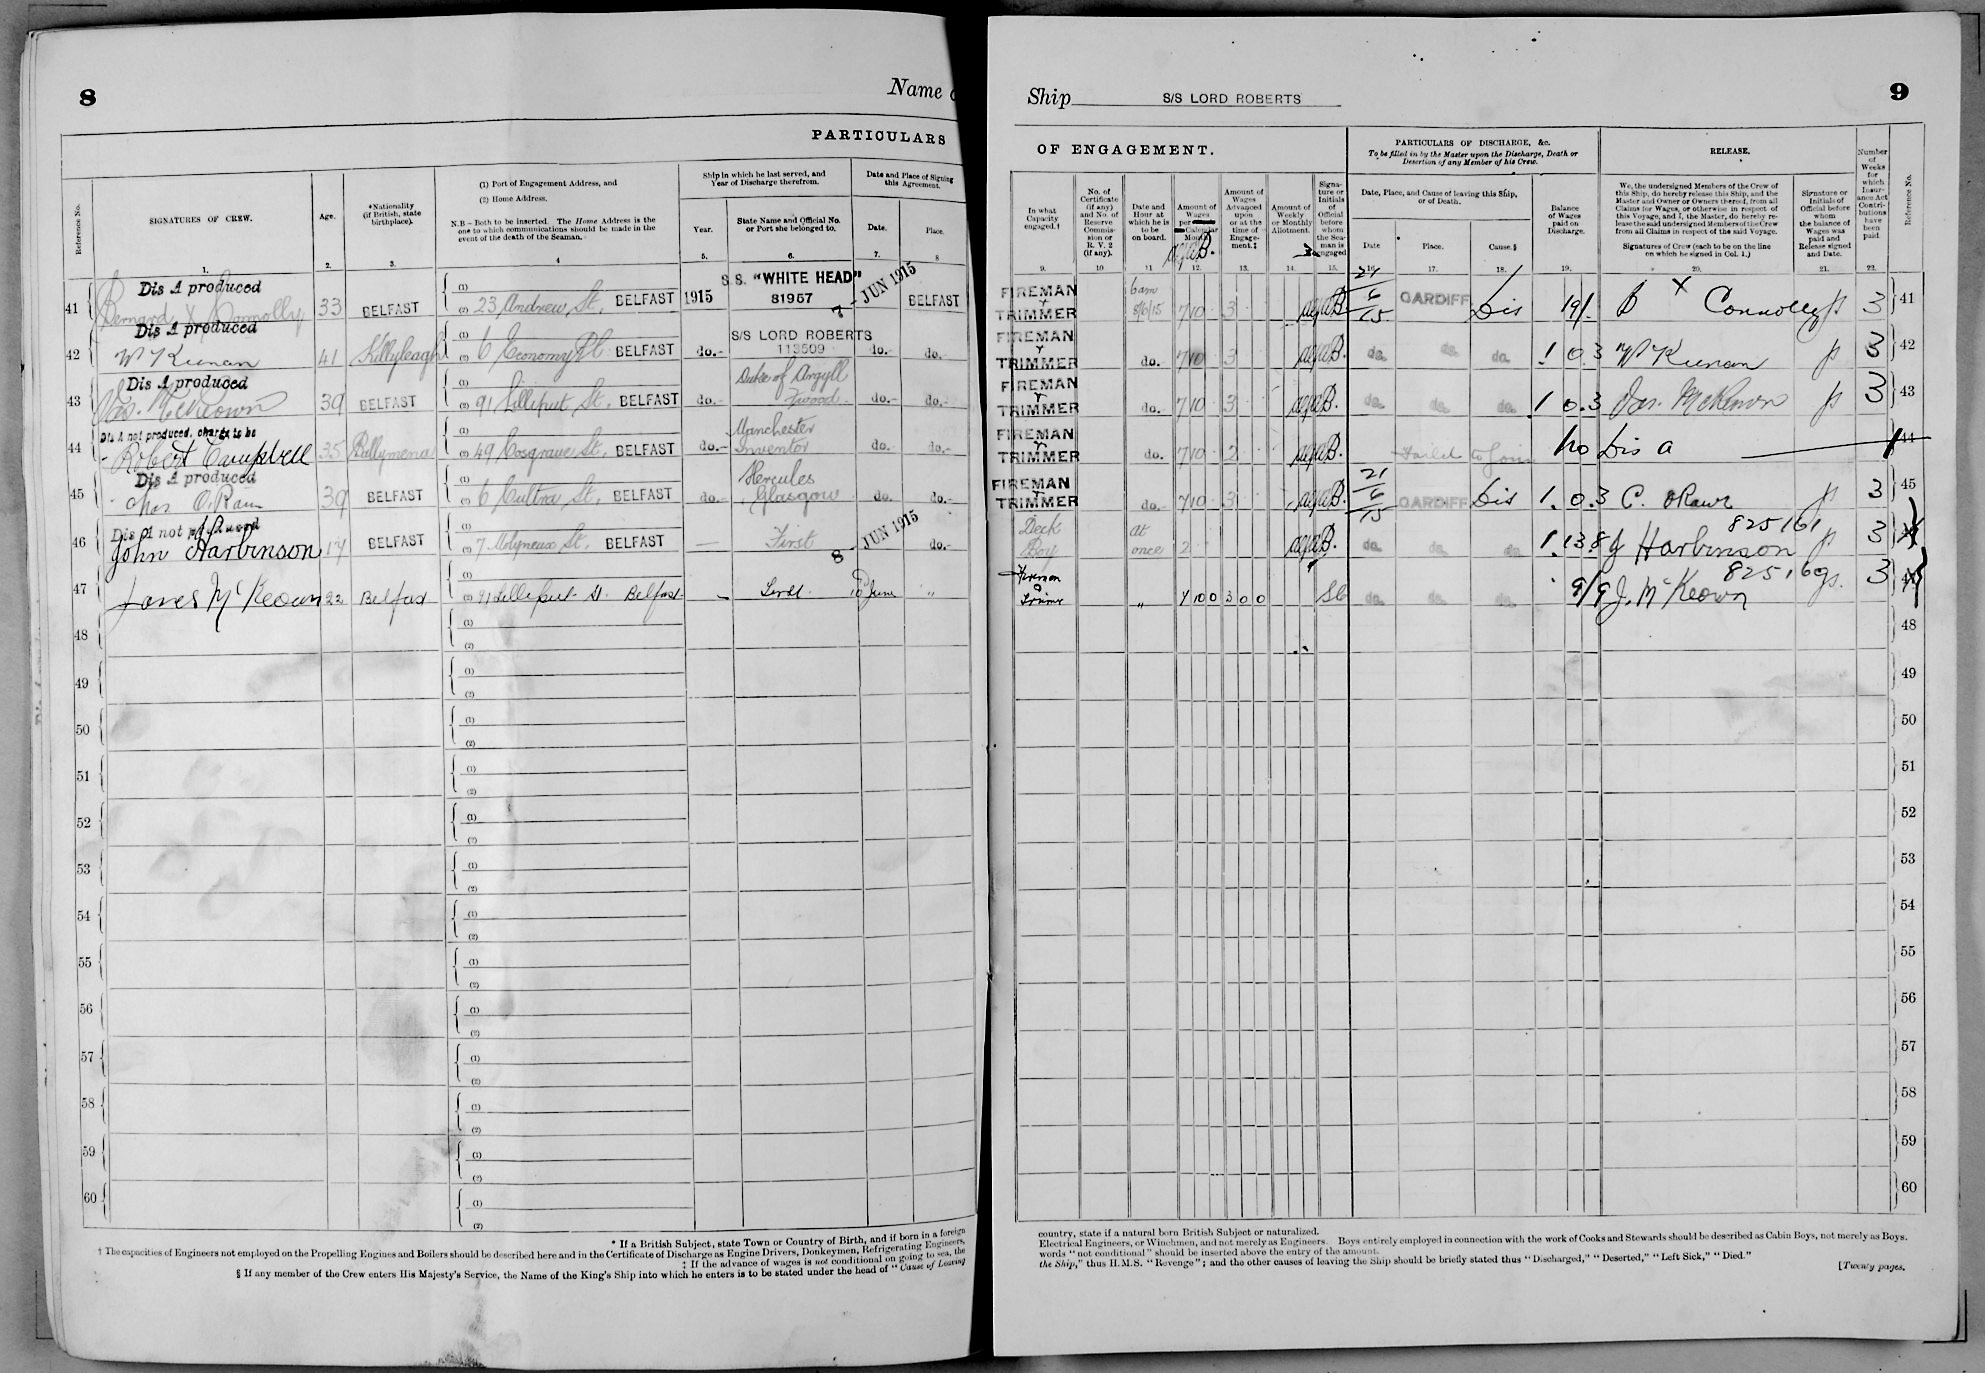 8
Name o
PARTICULARS
Reference No.
SIGNATURES OF CREW.
Age.
*Nationality
(if British, state
birthplace).
(1) Port of Engagement Address, and
(2) Home Address.
N.B.—Both to be inserted. The Home Address is the
one to which communications should be made in the
event of the death of the Seaman.
Ship in which he last served, and
Year of Discharge therefrom.
Year.
State Name and Official No.
or Port she belonged to.
Date and Place of Signing
this Agreement.
Date.
Place.
1. 2. 3. 4 5. 6. 7. 8
41 Dis A produced
Bernard X Connolly 33 BELFAST (1) (2) 23 Andrew St. BELFAST 1915 S.S. "WHITE HEAD" 81957 7 - JUN 1915 BELFAST
42 Dis A produced
W Keenan 41 Killyleagh (1) (2) 6 Economy Pl BELFAST do.- S/S LORD ROBERTS 113509 do.- do.-
43 Dis A produced
Jas. McKeown 39 BELFAST (1) (2) 91 Lilliput St. BELFAST do.- Duke of Argyll do.- do.-
44 Dis A not produced, charge to be
Robert Campbell 35 Ballymena (1) (2) 49 Cosgrave St. BELFAST do.- Manchester Inventor do.- do.-
45 Dis A produced
Chas O.Raw 39 BELFAST (1) (2) 6 Cultra St. BELFAST do.- Hercules Glasgow do. do.-
46 Dis A not produced
John Harbinson 17 BELFAST (1) (2) 7 Molyneux St. BELFAST — First 8 - JUN 1915 do.-
47 James McKeown 22 Belfast (1) (2) 91 Lilliput St. Belfast — First 10 June "
48 (1) (2)
49 (1) (2)
50 (1) (2)
51 (1) (2)
52 (1) (2)
53 (1) (2)
54 (1) (2)
55 (1) (2)
56 (1) (2)
57 (1) (2)
58 (1) (2)
59 (1) (2)
60 (1) (2)
* If a British Subject, state Town or Country of Birth, and if born in a foreign
† The capacities of Engineers not employed on the Propelling Engines and Boilers should be described here and in the Certificate of Discharge as Engine Drivers, Donkeymen, Refrigerating Engineers,
‡ If the advance of wages is not conditional on going to sea, the
§ If any member of the Crew enters His Majesty's Service, the Name of the King's Ship into which he enters is to be stated under the head of "Cause of Leaving
Ship S/S LORD ROBERTS
9
OF ENGAGEMENT.
PARTICULARS OF DISCHARGE, &c.
To be filled in by the Master upon the Discharge, Death or
Desertion of any Member of his Crew.
RELEASE.
In what
Capacity
engaged.†
No. of
Certificate
(if any)
and No. of
Reserve
Commis-
sion or
R. V. 2
(if any).
Date and
Hour at
which he is
to be
on board.
Amount of
Wages
per Calendar
Month
Amount of
Wages
Advanced
upon
or at the
time of
Engage-
ment.‡
Amount of
Weekly
or Monthly
Allotment.
Signa-
ture or
Initials
of
Official
before
whom
the Sea-
man is
engaged
Date, Place, and Cause of leaving this Ship,
or of Death.
Date
Place.
Cause.§
Balance
of Wages
paid on
Discharge.
We, the undersigned Members of the Crew of
this Ship, do hereby release this Ship, and the
Master and Owner or Owners thereof, from all
Claims for Wages, or otherwise in respect of
this Voyage, and I, the Master, do hereby re-
lease the said undersigned Members of the Crew
from all Claims in respect of the said Voyage.
Signatures of Crew (each to be on the line
on which he signed in Col. 1.)
Signature or
Initials of
Official before
whom
the balance of
Wages was
paid and
Release signed
and Date.
Number
of
Weeks
for
which
Insur-
ance Act
Contri-
butions
have
been
paid
Reference No.
9. 10 11 12. 13. 14. 15. 16. 17. 18. 19. 20. 21. 22.
FIREMAN + TRIMMER 6am 8/6/15 7 10 3 21/6/15 CARDIFF Dis 19/. B X Connolly js 3 41
FIREMAN + TRIMMER do. 7 10 3 do. do. do. 1 0 3 W Keenan js 3 42
FIREMAN + TRIMMER do. 7 10 3 do. do. do. 1 0.3 Jas. McKeown js 3 43
FIREMAN + TRIMMER do. 7 10 2 Failed to Join No Dis A 44
FIREMAN + TRIMMER do. 7 10 3 21/6/15 CARDIFF Dis 1. 0. 3 C. ORawe js 3 45
Deck Boy at once 2 do. do. do. 1.13.8 J Harbinson 825161 js 3 46
Fireman & Trimmer " 7 10 0 3 0 0 do. do. do. 9/9 J. McKeown 825160 js. 3 47
48
49
50
51
52
53
54
55
56
57
58
59
60
country, state if a natural born British Subject or naturalized.
Electrical Engineers, or Winchmen, and not merely as Engineers. Boys entirely employed in connection with the work of Cooks and Stewards should be described as Cabin Boys, not merely as Boys.
words "not conditional" should be inserted above the entry of the amount.
the Ship," thus H.M.S. "Revenge"; and the other causes of leaving the Ship should be briefly stated thus "Discharged," "Deserted," "Left Sick," "Died."
[Twenty pages.